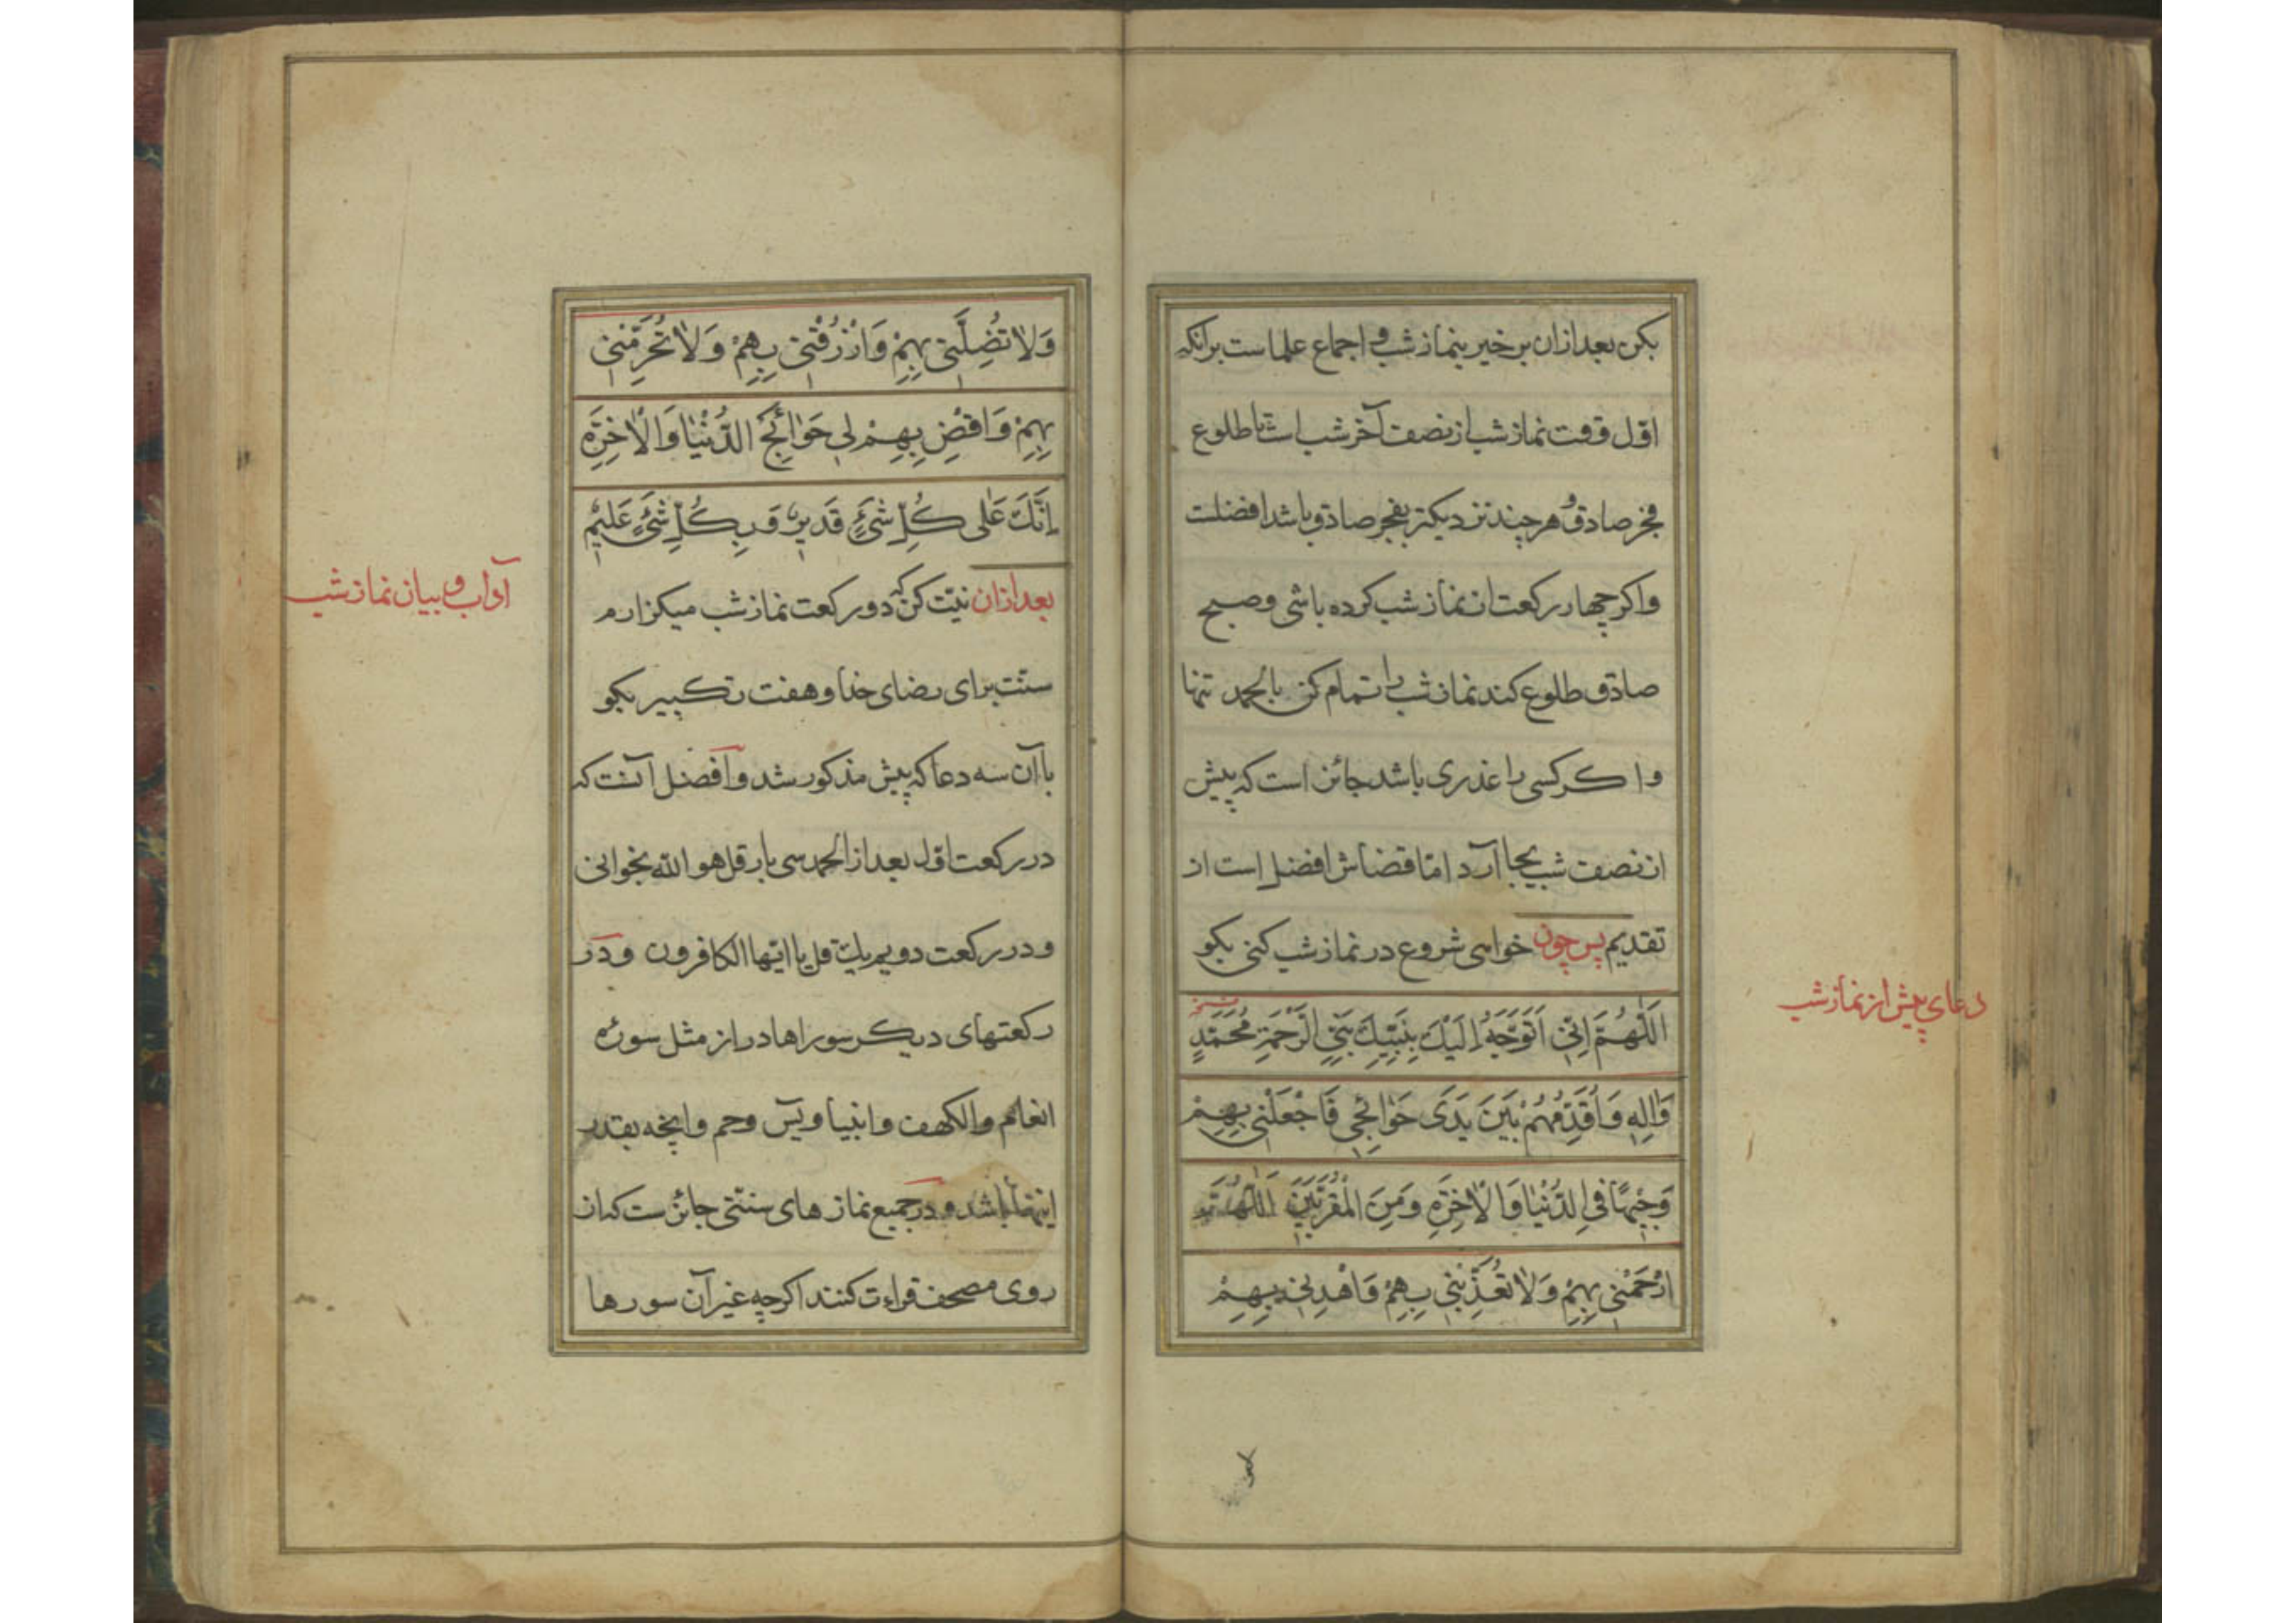 بکن بعد ازان برخیز بنماز شب و اجماع علماست برانکه
اوّل وقت نماز شب از نصف آخر شب است تا طلوع
فجر صادق و هر چند نزدیکتر بفجر صادق باشد افضلست
واکر چهار رکعت از نماز شب کرده باشی و صبح
صادق طلوع کند نماز شب را تمام کن بالحمد تنها
واکر کسی را عذری باشد جائز است که پیش
از نصف شب بجا آرد امّا قضاش افضل است از
تقدیم پس چون خواهی شروع در نماز شب کنی بکو
اَللّٰهُمَّ اِنّیِ اَتَوَجَّهُ اِلَیْكَ بِنَبِیِّكَ نَبِیِّ الرَّحْمَةِ مُحَمَّدٍ
وَاٰلِهِ وَاُقَدِّمُهُمْ بَیْنَ یَدَیْ حَوٰائِجی فَاجْعَلْنی بِهِمْ
وَجیهًا فیِ الدُّنْیٰا وَالْاٰخِرَةِ وَمِنَ الْمُقَرَّبینَ اَللّٰهُمَّ
ارْحَمْنی بِهِمْ وَلٰا تُعَذِّبْنی بِهِمْ وَاهْدِنی بِهِمْ
دعای پیش از نماز شب
وَلٰا تُضِلَّنی بِهِمْ وَارْزُقْنی بِهِمْ وَلٰا تُحَرِّمْنی
بِهِمْ وَاقْضِ بِهِمْ لی حَوٰائِجَ الدُّنْیٰا وَالْاٰخِرَةِ
اِنَّكَ عَلٰی کُلِّ شَیْءٍ قَدیرٌ وَبِکُلِّ شَیْءٍ عَلیمٌ
بعد ازان نیّت کن که دو رکعت نماز شب میکزارم
سنّت برای رضای خدا و هفت تکبیر بکو
با آن سه دعا که پیش مذکور شد و افضل آنست که
در رکعت اوّل بعد از الحمد سی بار قل هو الله بخوانی
و در رکعت دویم یك قل یا ایّها الکافرون و در
رکعتهای دیکر سورها دراز مثل سورۀ
انعام والکهف وانبیا ویس وحم وانچه بقدر
اینها باشد و در جمیع نماز های سنّتی جائزست که از
روی مصحف قراءت کنند اکرچه غیر آن سورها
آداب و بیان نماز شب